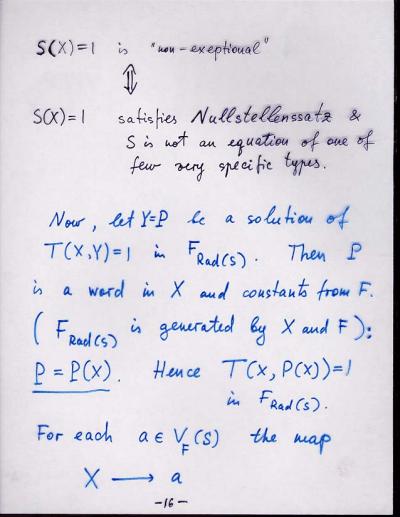 S(X)=1 is "non-exeptional"
⇕
S(X)=1 satisfies Nullstellenssatz &
S is not an equation of one of
few very specific types.
Now, let Y=P be a solution of
T(X,Y)=1 in F_Rad(S). Then P
is a word in X and constants from F.
(F_Rad(S) is generated by X and F):
P = P(X). Hence T(X, P(X))=1
in F_Rad(S).
For each a ∈ V_F(S) the map
X ⟶ a
-16-